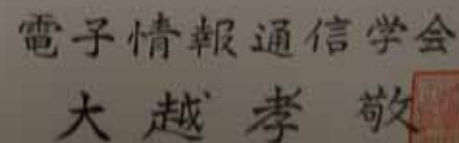 電子情報通信学会
大越孝敬